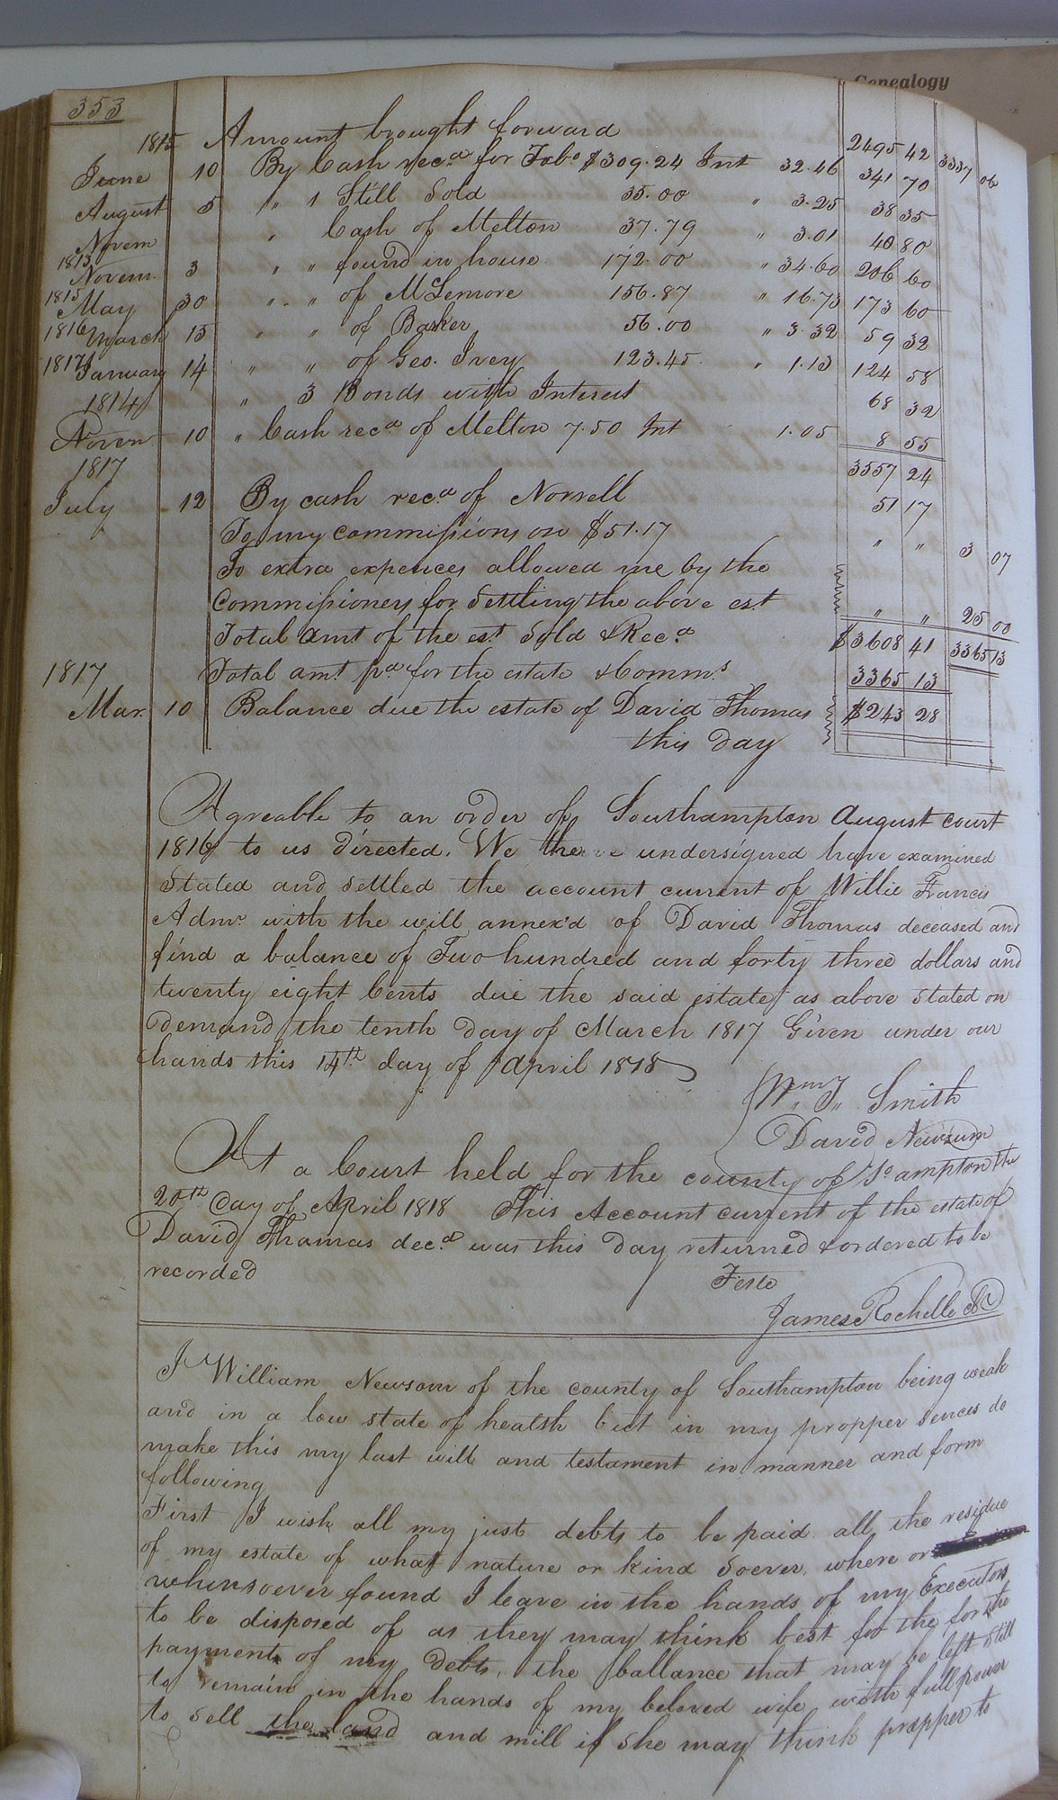 Genealogy
353
1815 Amount brought forward 2495 42 3337 06
June 10 By Cash recd for Tobo $309.24 Int 32.46 341 70
August 5 " 1 Still Sold 35.00 " 3.25 38 35
Novem " Cash of Melton 37.79 " 3.01 40 80
1813 Novem. 3 " " found in house 172.00 " 34.60 206 60
1815 May 30 " " of McLemore 156.87 " 16.73 173 60
1816 March 15 " " of Barker 56.00 " 3.32 59 32
1817 January 14 " " of Geo. Ivey 123.45 " 1.13 124 58
1814 " 3 Bonds with Interest 68 32
Novem 10 " Cash recd of Melton 7.50 Int 1.05 8 55
1817 3557 24
July 12 By cash recd of Norsell 51 17
To my commissions on $51.17 " " 3 07
To extra expences allowed me by the
Commissioners for Settling the above est " " 25 00
Total amt of the est Sold & Recd $3608 41 3365 13
1817 Total amt pd for the estate & Comms 3365 13
Mar. 10 Balance due the estate of David Thomas $243 28
this day
Agreable to an order of Southampton August court
1816 to us directed. We the undersigned have examined
Stated and settled the account current of Willie Francis
Admr with the will annex'd of David Thomas deceased and
find a balance of Two hundred and forty three dollars and
twenty eight Cents due the said estate as above stated on
demand the tenth day of March 1817 Given under our
hands this 14th day of April 1818
Wm J. Smith
David Newsum
At a Court held for the county of So ampton the
20th day of April 1818 This Account current of the estate of
David Thomas decd was this day returned & ordered to be
recorded Teste
James Rochelle CC
I William Newsom of the county of Southampton being weak
and in a low state of health but in my propper sences do
make this my last will and testament in manner and form
following
First I wish all my just debts to be paid all the residue
of my estate of what nature or kind soever, where or
whensoever found I leave in the hands of my Executors
to be disposed of as they may think best for the for the
payment of my debts, the ballance that may be left still
to remain in the hands of my beloved wife with full power
to sell the land and mill if she may think propper to